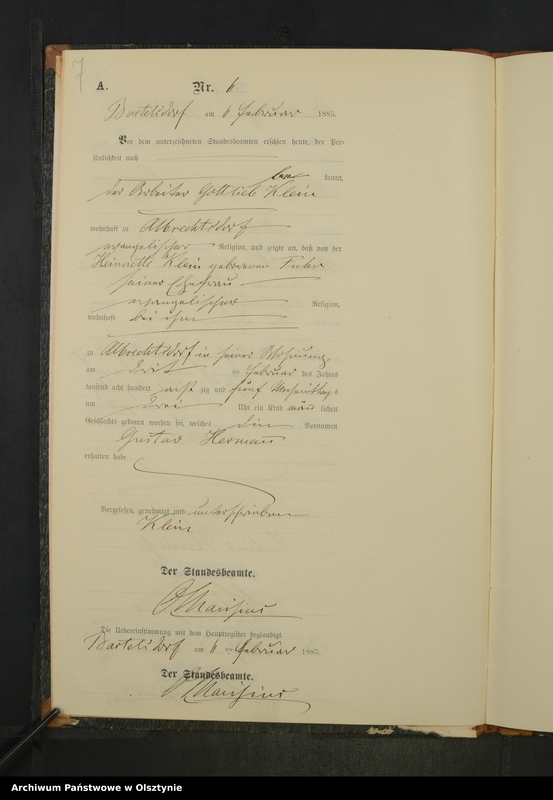 7
A.
Nr. 6
Bartelsdorf am 6 Februar 1885.
Vor dem unterzeichneten Standesbeamten erschien heute, der Per-
sönlichkeit nach
be kannt,
der Arbeiter Gottlieb Klein
wohnhaft zu Albrechtsdorf
evangelischer Religion, und zeigte an, daß von der
Heinriette Klein geborenen Fuhr
seiner Ehefrau
evangelischer Religion,
wohnhaft bei ihm
zu Albrechtsdorf in seiner Wohnung
am Februar des Jahres
tausend acht hundert acht zig und fünf Nachmittags
um drei Uhr ein Kind männ lichen
Geschlechts geboren worden sei, welches die Vornamen
Gustav Hermann
erhalten habe
Vorgelesen, genehmigt und unterschrieben
Klein
Der Standesbeamte.
Die Uebereinstimmung mit dem Hauptregister beglaubigt.
Bartelsdorf am 6 Februar 1885.
Der Standesbeamte.
Archiwum Państwowe w Olsztynie